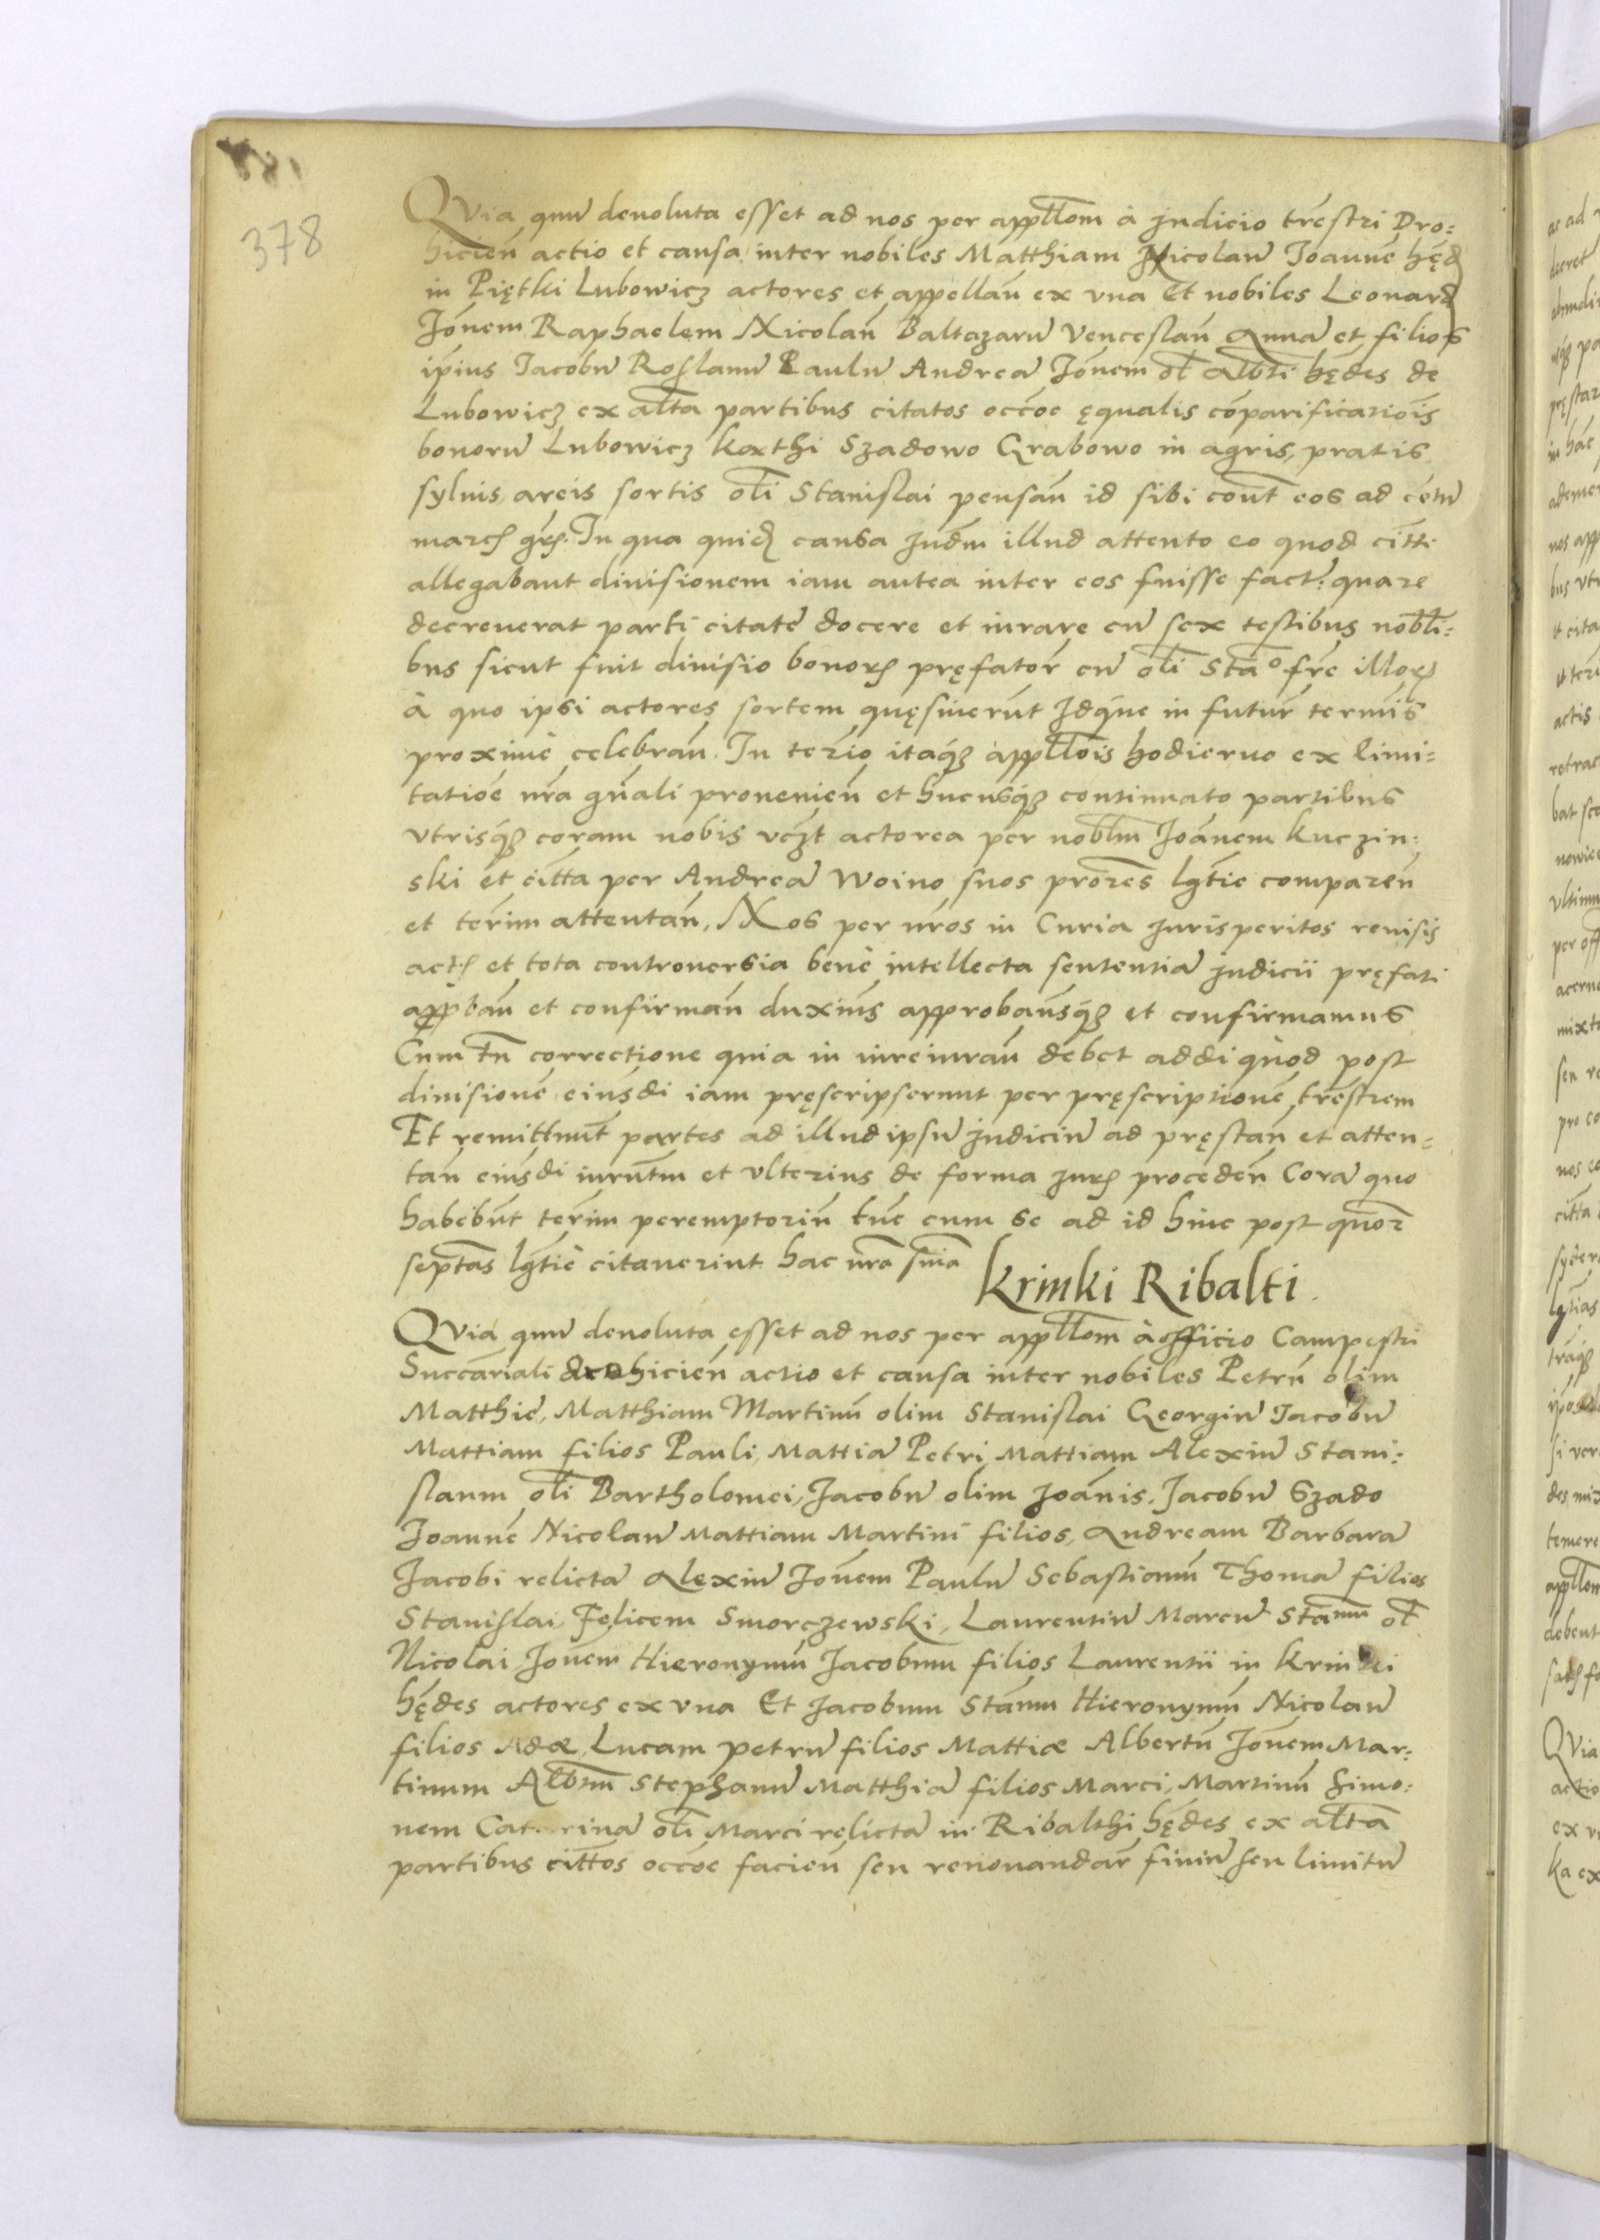 378
QVia quum deuoluta esset ad nos per appllōm à judicio trēstri Dro=
hicień actio et causa inter nobiles Matthiam Nicolaū Joannē hęd
in Piętki Lubowicz actores et appellań ex vna Et nobiles Leonard
Jōnem Raphaelem Nicolaū Baltazarū Venceslaū Annā et filios
ipīus Jacobū Roslanū Paulū Andreā Jōnem ol Albti hędes de
Lubowicz ex alta partibus citatos occōe ęqualis cōparificatiōis
bonorū Lubowicz Kathi Szadowo Grabowo in agris, pratis
syluis, areis sortis oli Stanislai pensań id sibi cont eos ad cētū
marcs grs. In qua quid causa judm illud attento eo quod citti
allegabant diuisionem iam antea inter eos fuisse fact: quare
decreuerat parti citate docere et iurare cū sex testibus nobli=
bus sicut fuit diuisio bonors pręfator cū oli Stao fre illors
à quo ipsi actores sortem quęsiuerūt Idque in futur termis
proximè celebrań. In terīo itaq appllōis hodierno ex limi=
tatiōe nra gnāli prouenień et hucusq continuato partibus
vtrisq coram nobis vczt actorea per noblm Joānem Kuczin=
ski et citta per Andreā Woino suos prores lgtie comparen
et terim attentań, Nos per nros in Curia jurisperitos reuisis
acts et tota controuersia benè intellecta sententiā judicii pręfati
appbań et confirmań duximus approbamusq et confirmamus
Cum tn correctione quia in iureiurań debet addi quod post
diuisionē eiusdi iam pręscripserunt per pręscriptionē trestrem
Et remittunt partes ad illud ipsū judiciū ad pręstań et atten=
tań eiusdi iurntm et vlterius de forma jurs proceden Corā quo
habebunt terim peremptoriū tūc cum se ad id hinc post quor
septas lgtiè citauerint hac nra snia
Krinki Ribalti.
QVia quum deuoluta esset ad nos per appllōm à officio Campestri
Succariali drohicień actio et causa inter nobiles Petrū olim
Matthie, Matthiam Martinū olim Stanislai Georgiū Jacobū
Mattiam filios Pauli, Mattiā Petri, Mattiam Alexiū Stani=
slaum oli Bartholomei, Jacobū olim Joānis, Jacobū Szado
Joannē Nicolaū Mattiam Martini filios, Andream Barbarā
Jacobi relictā Alexiū Jōnem Paulū Sebastianū Thomā filios
Stanislai, Felicem Smorczewski, Laurentiū Marcū Stanm ol
Nicolai Jonem Hieronymū Jacobum filios Laurentii in Krinki
hędes actores ex vna Et Jacobum Stānm Hieronymū Nicolaū
filios Adæ, Lucam petrū filios Mattiæ Albertū Jōnem Mar=
tinum Albtm Stephanū Matthiā filios Marci, Martinū Simo=
nem Catarinā oli Marci relictā in Ribalthi hędes ex alta
partibus cittos occōe facień seu renouandar finiū seu limitū